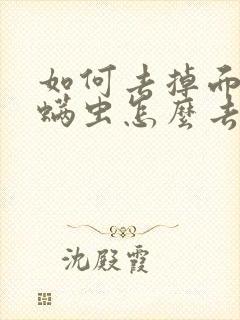 如何去掉而
螨虫怎麼去
沈殿霞